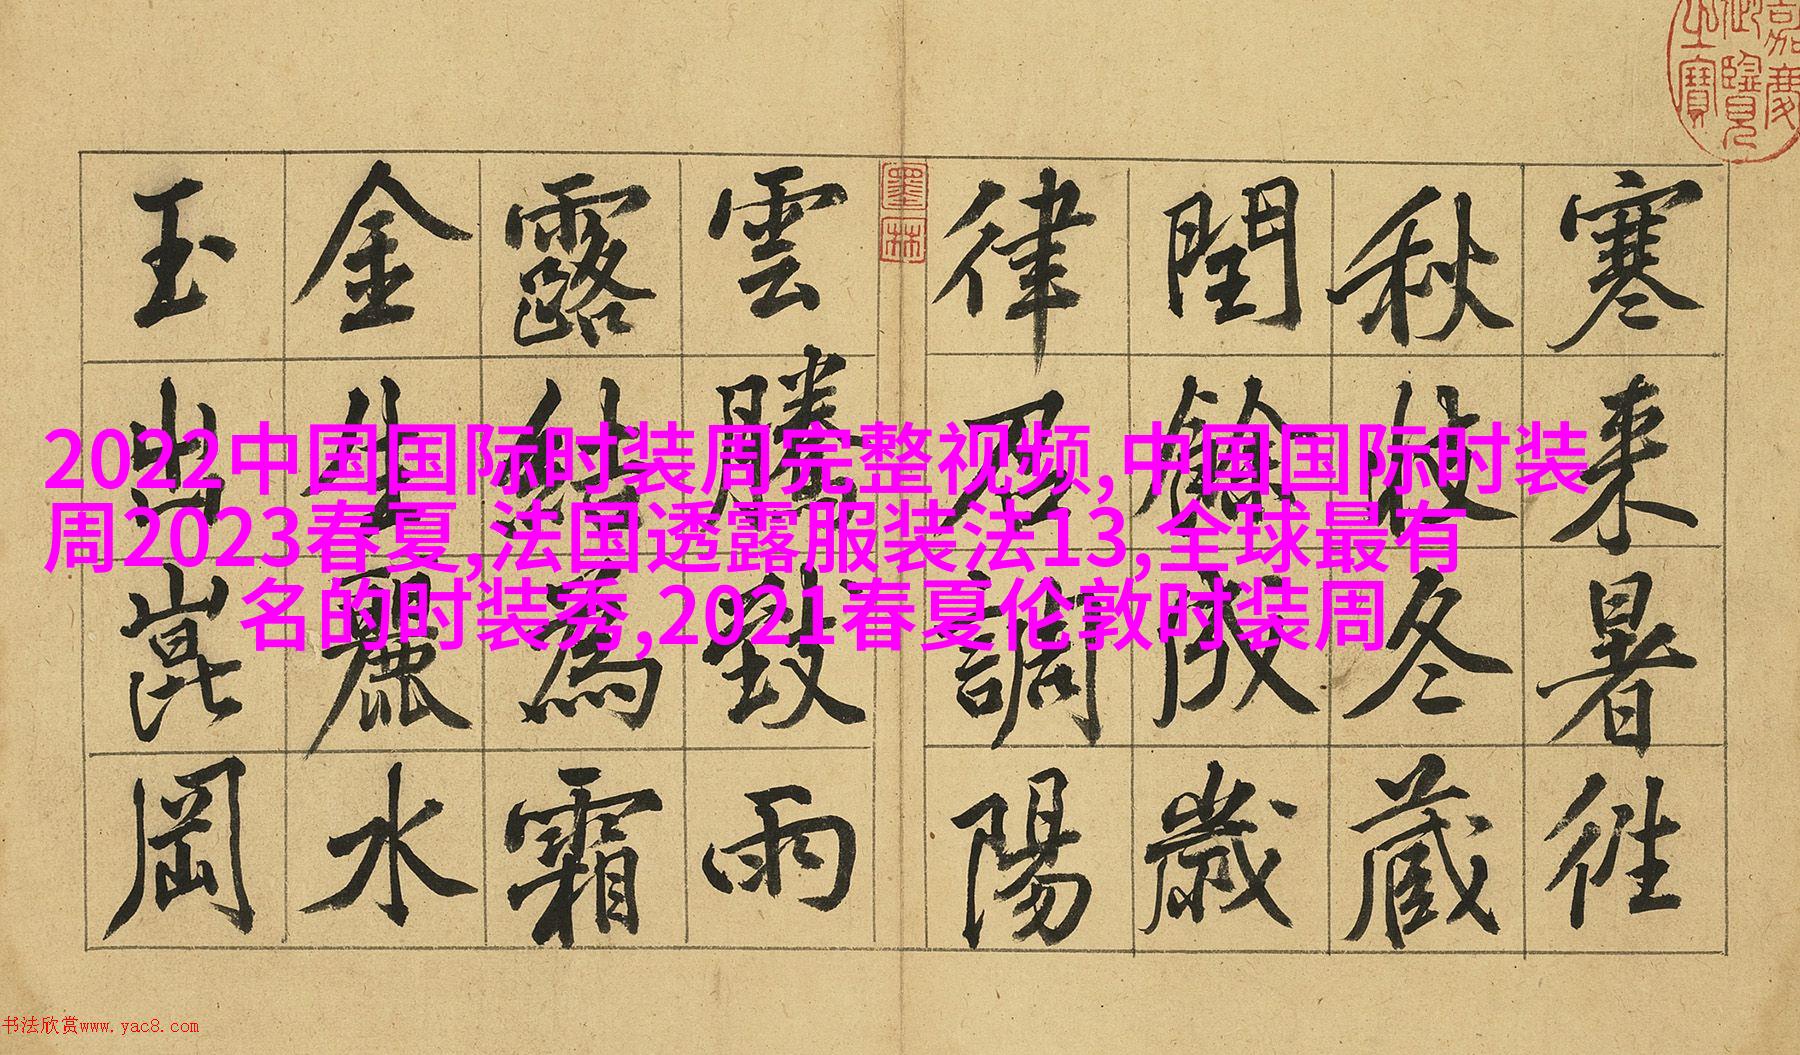 寒来暑徃
秋收冬蔵
閏餘成歲
律吕調陽
雲騰致雨
露結為霜
金生麗水
玉出崑岡
嘉慶
御覽
之寶
墨林
2022中国国际时装周完整视频,中国国际时装
周2023春夏,法国透露服装法13,全球最有
名的时装秀,2021春夏伦敦时装周
书法欣赏www.yac8.com